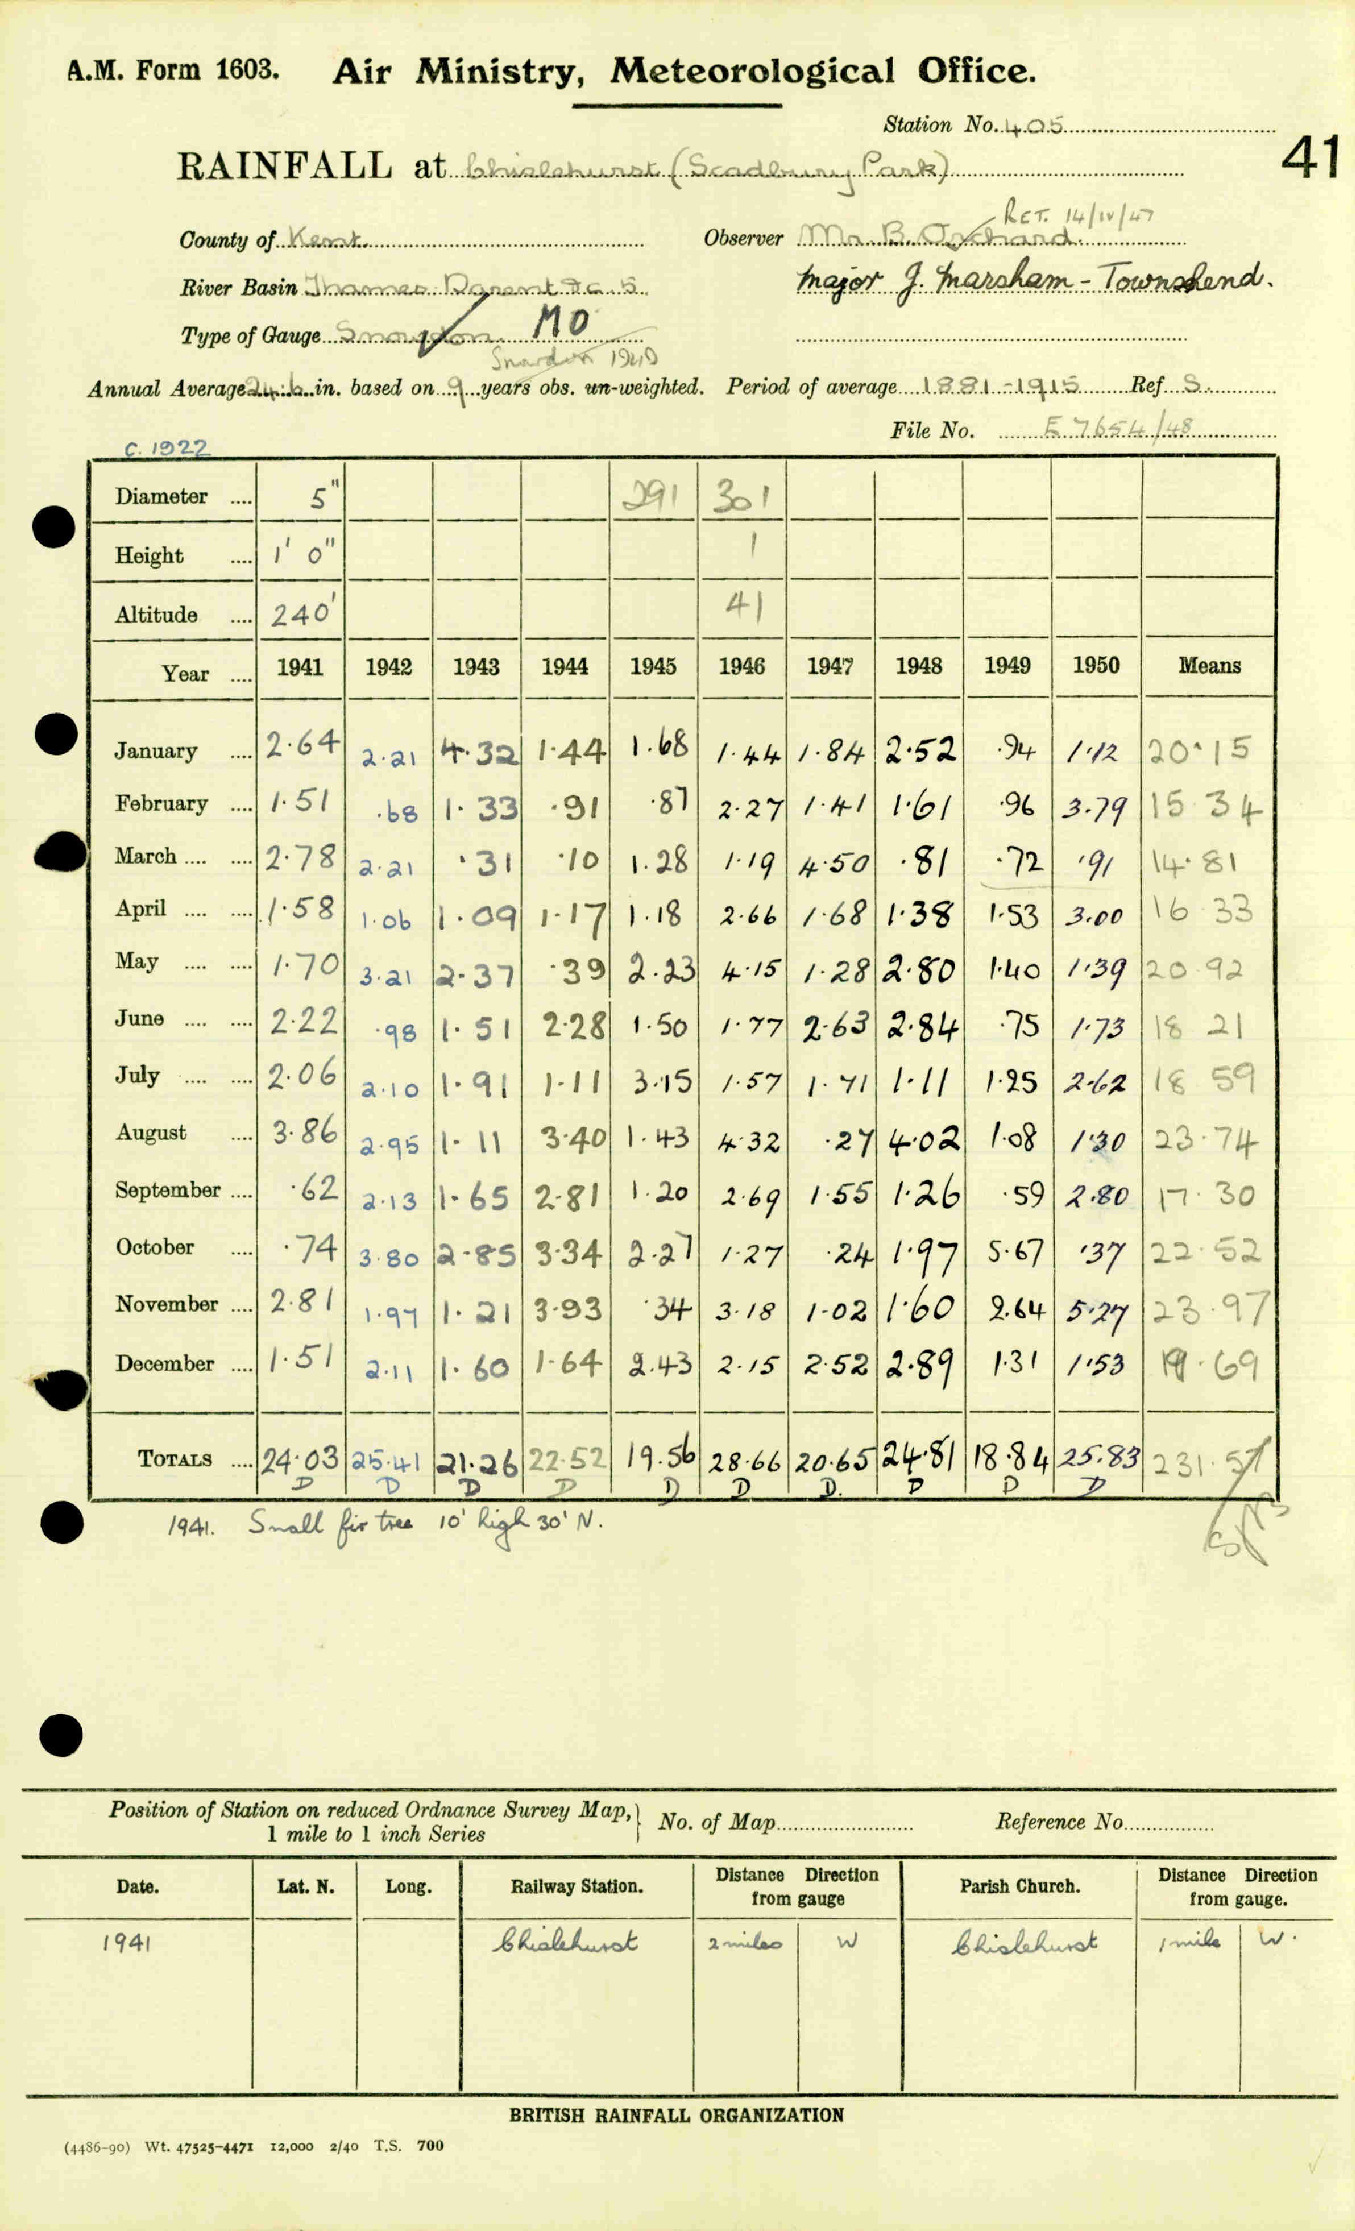 A.M. Form 1603. Air Ministry, Meteorological Office.
Station No. 405
41
RAINFALL at Chislehurst (Scadbury Park)
RET. 14/IV/47
County of Kent. Observer Mr B. Orchard.
River Basin Thames Darent &c. 5. Major J. Marsham - Townshend.
Type of Gauge Snowdon. MO
Snowdon 1940
Annual Average 24.6 in. based on 9 years obs. un-weighted. Period of average 1881-1915 Ref S.
File No. E 7654/48
C. 1922
Diameter .... 5" 291 301
Height .... 1' 0" 1
Altitude .... 240' 41
Year .... 1941 1942 1943 1944 1945 1946 1947 1948 1949 1950 Means
January .... 2·64 2·21 4·32 1·44 1·68 1·44 1·84 2·52 ·94 1·12 20·15
February .... 1·51 ·68 1·33 ·91 ·87 2·27 1·41 1·61 ·96 3·79 15 34
March .... .... 2·78 2·21 ·31 ·10 1·28 1·19 4·50 ·81 ·72 ·91 14·81
April .... .... 1·58 1·06 1·09 1·17 1·18 2·66 1·68 1·38 1·53 3·00 16 33
May .... .... 1·70 3·21 2·37 ·39 2·23 4·15 1·28 2·80 1·40 1·39 20·92
June .... .... 2·22 ·98 1·51 2·28 1·50 1·77 2·63 2·84 ·75 1·73 18 21
July .... .... 2·06 2·10 1·91 1·11 3·15 1·57 1·71 1·11 1·25 2·62 18 59
August .... 3·86 2·95 1·11 3·40 1·43 4·32 ·27 4·02 1·08 1·30 23·74
September .... ·62 2·13 1·65 2·81 1·20 2·69 1·55 1·26 ·59 2·80 17·30
October .... ·74 3·80 2·85 3·34 2·27 1·27 ·24 1·97 5·67 ·37 22·52
November .... 2·81 1·97 1·21 3·93 ·34 3·18 1·02 1·60 2·64 5·27 23·97
December .... 1·51 2·11 1·60 1·64 2·43 2·15 2·52 2·89 1·31 1·53 19·69
TOTALS .... 24·03 25·41 21·26 22·52 19·56 28·66 20·65 24·81 18·84 25·83 231·57
D D D D D D D. D D D
1941. Small fir tree 10' high 30' N.
Position of Station on reduced Ordnance Survey Map, } No. of Map Reference No.
1 mile to 1 inch Series
Date. Lat. N. Long. Railway Station. Distance Direction from gauge Parish Church. Distance Direction from gauge.
1941 Chislehurst 2 miles W Chislehurst 1 mile W.
BRITISH RAINFALL ORGANIZATION
(4486-90) Wt. 47525-4471 12,000 2/40 T.S. 700